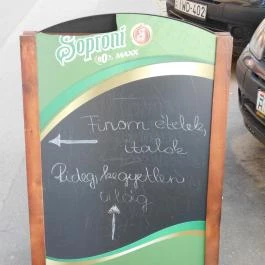 Soproni
MAXX
Finom ételek,
italok
Rideg, kegyetlen
világ